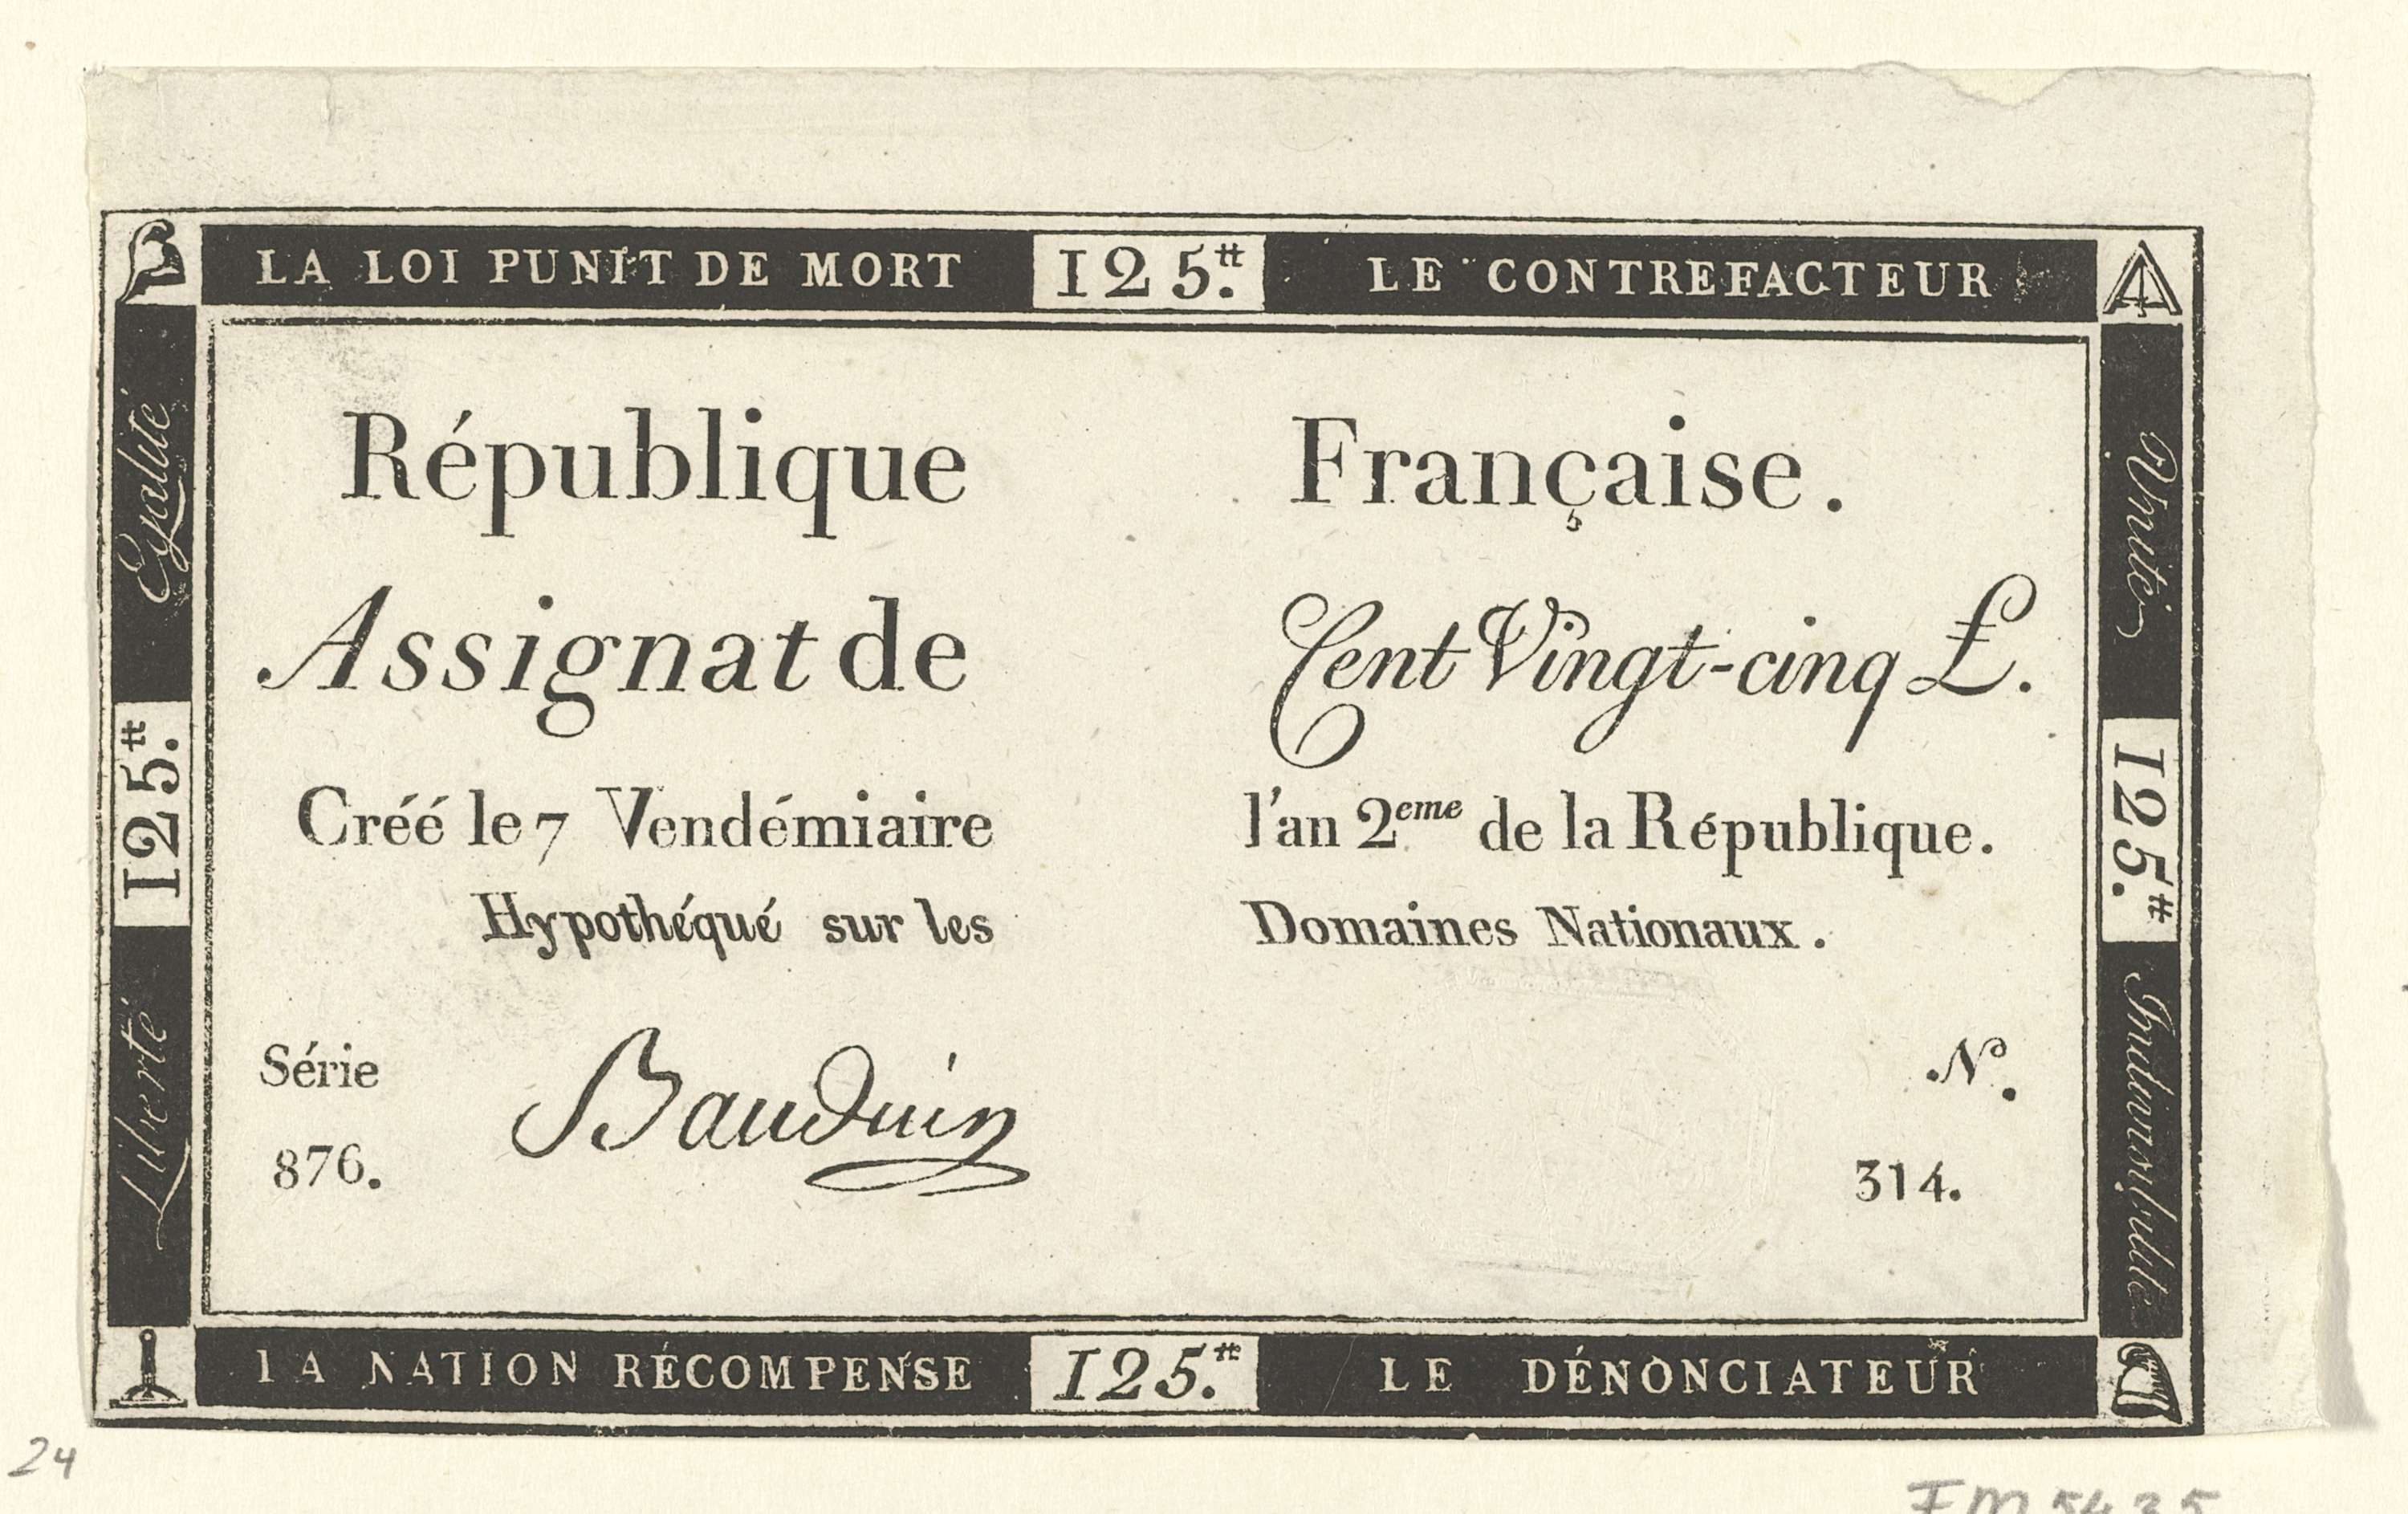 LA LOI PUNIT DE MORT 125.₶ LE CONTREFACTEUR
Egalité
125.₶
Liberté
République Française.
Assignat de Cent Vingt-cinq £.
Créé le 7 Vendémiaire l'an 2eme de la République.
Hypothéqué sur les Domaines Nationaux.
Série
876.
Bauduin
No.
314.
Unité
125.₶
Indivisibilité
LA NATION RÉCOMPENSE 125.₶ LE DÉNONCIATEUR
24
FM 5435